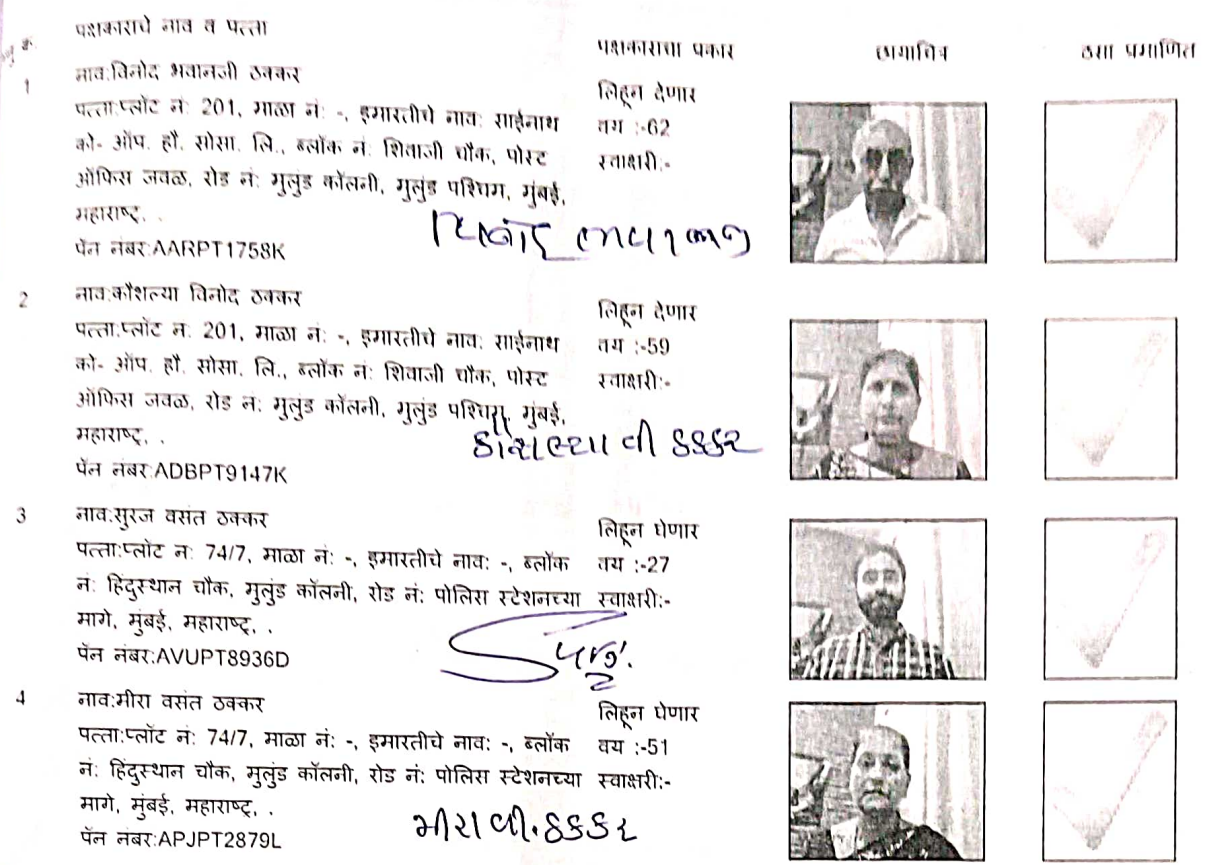 पक्षकाराचे नाव व पत्ता पक्षकाराचा प्रकार छायाचित्र ठसा प्रमाणित
1 नाव:विनोद भवानजी ठक्कर
पत्ता:प्लॉट नं: 201, माळा नं: -, इमारतीचे नाव: साईनाथ
को- ऑप. हौ. सोसा. लि., ब्लॉक नं: शिवाजी चौक, पोस्ट
ऑफिस जवळ, रोड नं: मुलुंड कॉलनी, मुलुंड पश्चिम, मुंबई,
महाराष्ट्र, .
पॅन नंबर:AARPT1758K
लिहून देणार
वय :-62
स्वाक्षरी:-
2 नाव:कौशल्या विनोद ठक्कर
पत्ता:प्लॉट नं: 201, माळा नं: -, इमारतीचे नाव: साईनाथ
को- ऑप. हौ. सोसा. लि., ब्लॉक नं: शिवाजी चौक, पोस्ट
ऑफिस जवळ, रोड नं: मुलुंड कॉलनी, मुलुंड पश्चिम, मुंबई,
महाराष्ट्र, .
पॅन नंबर:ADBPT9147K
लिहून देणार
वय :-59
स्वाक्षरी:-
કૌશલ્યા વી ઠક્કર
3 नाव:सुरज वसंत ठक्कर
पत्ता:प्लॉट नं: 74/7, माळा नं: -, इमारतीचे नाव: -, ब्लॉक
नं: हिंदुस्थान चौक, मुलुंड कॉलनी, रोड नं: पोलिस स्टेशनच्या
मागे, मुंबई, महाराष्ट्र, .
पॅन नंबर:AVUPT8936D
लिहून घेणार
वय :-27
स्वाक्षरी:-
4 नाव:मीरा वसंत ठक्कर
पत्ता:प्लॉट नं: 74/7, माळा नं: -, इमारतीचे नाव: -, ब्लॉक
नं: हिंदुस्थान चौक, मुलुंड कॉलनी, रोड नं: पोलिस स्टेशनच्या
मागे, मुंबई, महाराष्ट्र, .
पॅन नंबर:APJPT2879L
लिहून घेणार
वय :-51
स्वाक्षरी:-
મીરા વી. ઠક્કર